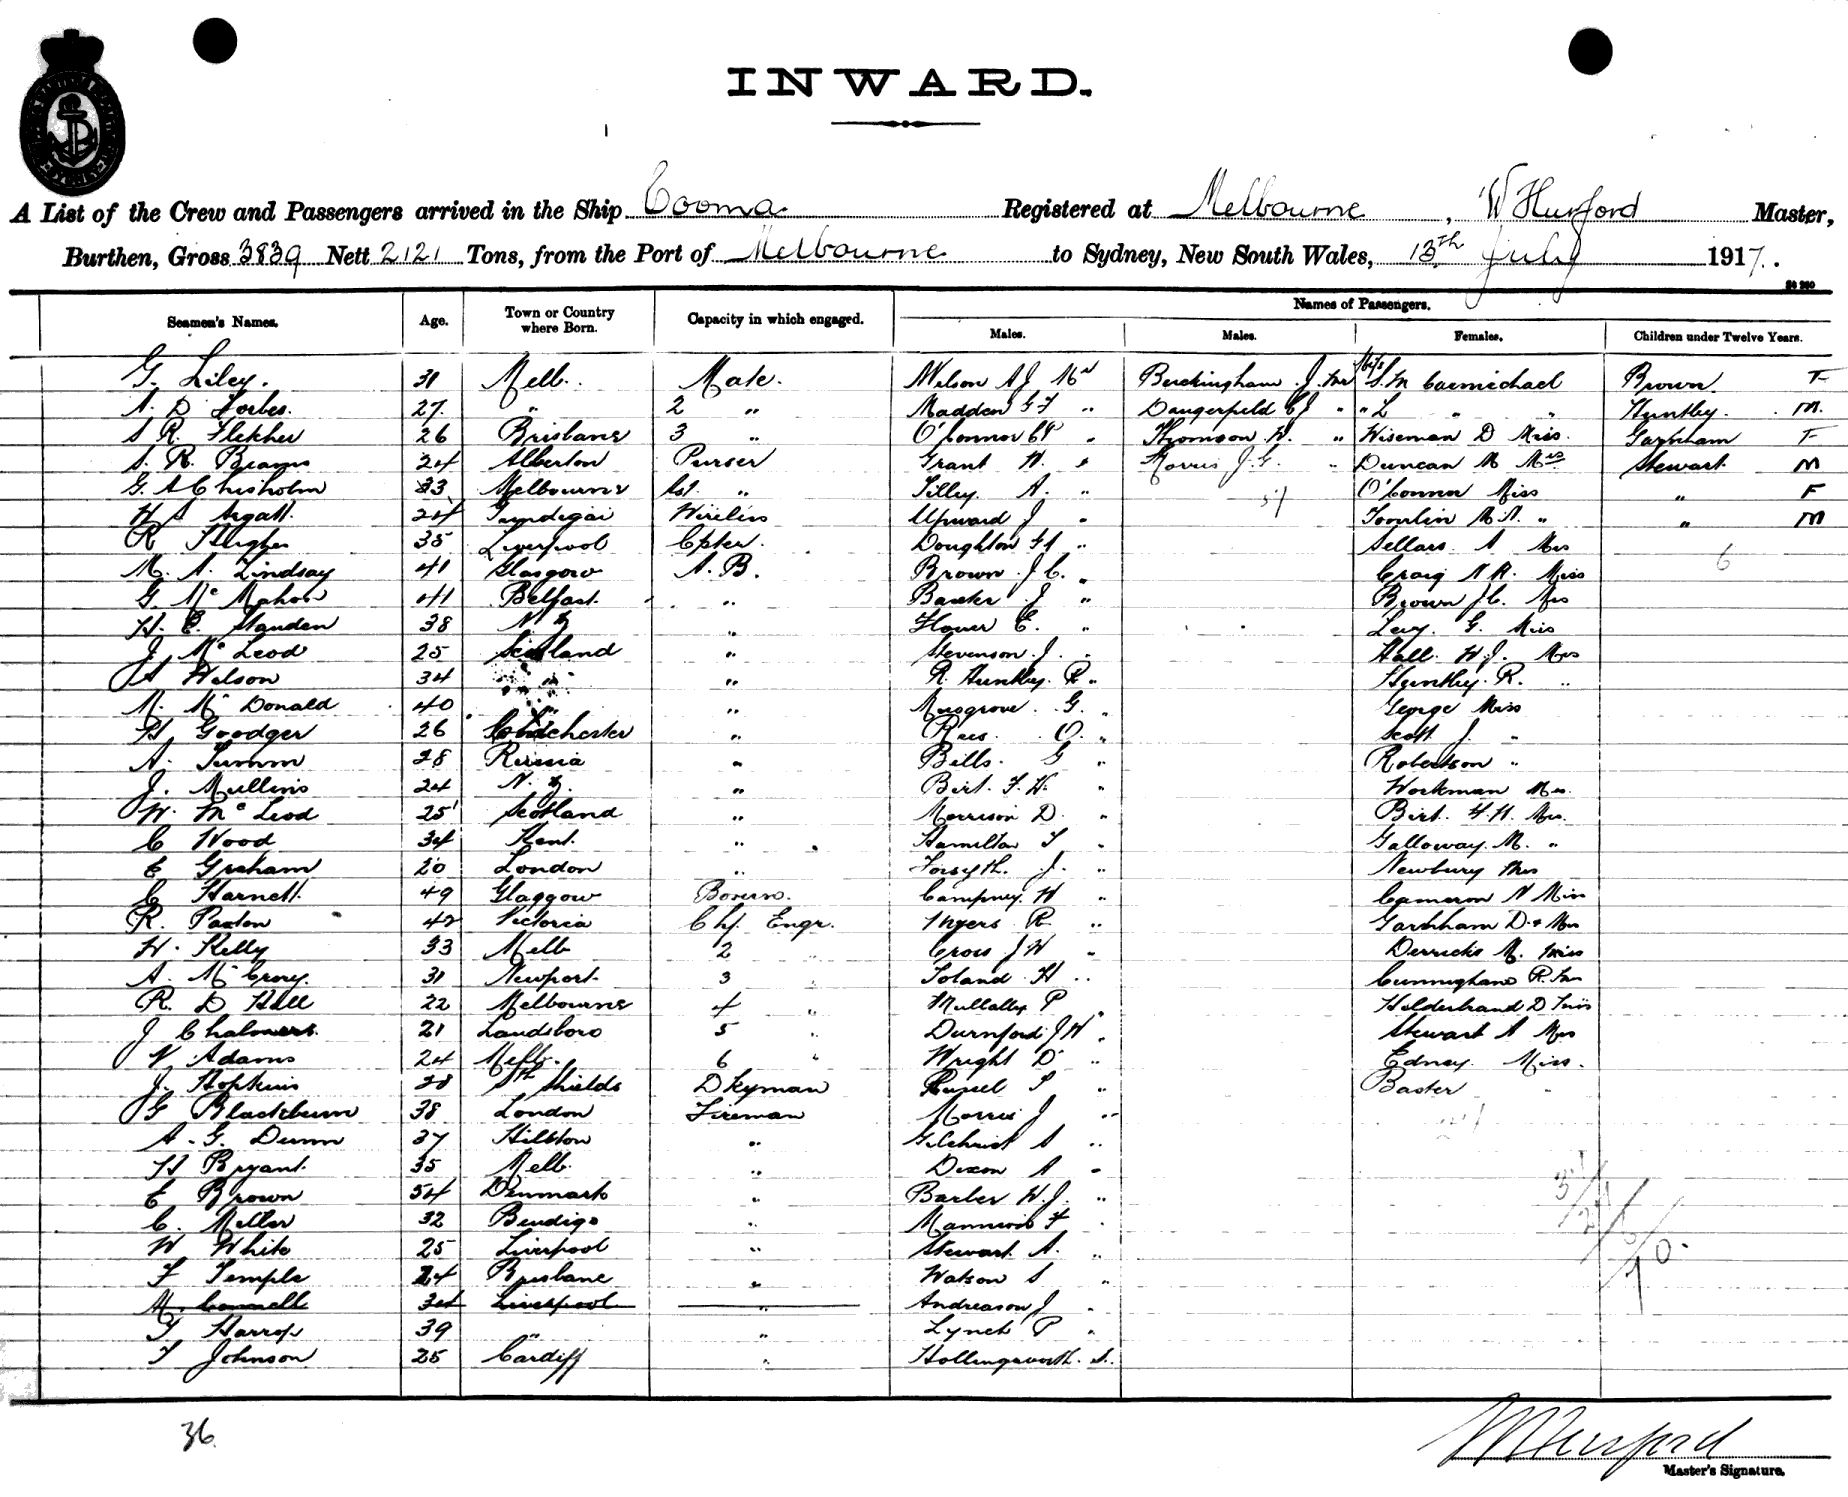 INWARD.
A List of the Crew and Passengers arrived in the Ship Cooma Registered at Melbourne, W Hurford Master,
Burthen, Gross 3839 Nett 2121 Tons, from the Port of Melbourne to Sydney, New South Wales, 13th July 1917.
Names of Passengers.
Seamen's Names. Age. Town or Country where Born. Capacity in which engaged. Males. Males. Females. Children under Twelve Years.
G. Liley. 31 Melb. Mate. Nelson A J Mr Buckingham J. Mr S. M Carmichael Brown F
A. D Forbes. 27 " 2 " Madden G F " Dangerfield C J " " L " " Huntley. M.
S R. Fletcher 26 Brisbane 3 " O'Connor " Thomson W. " Wiseman D Miss. Garnham F
S. R. 24 Alberton Purser Grant W. " Morris J. G. " Duncan M Mrs Stewart M
G A Chisholm 33 Melbourne Ast. " Tilley A. " O'Connor Miss " F
W S 24 Wireless Upward J " M. A. " " M
R Hughes 35 Liverpool Cpter. Doughton " Sellars. A Mrs
M. A. Lindsay 41 Glasgow A. B. Brown J C. " Craig N R. Miss 6
G. McMahon 41 Belfast " Baxter J " Brown J C. Mrs
H. E. 38 N Z " E. " Levy. G. Miss
J McLeod 25 Scotland " Stevenson. J. " Hall. W. J. Mrs
A Wilson 34 " " R. Huntley. R " Huntley. R. "
M. McDonald 40 " " Musgrove. G. " George Miss
H Goodger 26 Colchester " Rees. O. " Scott J. "
A. 28 Russia " Bills. G " Robertson "
J. Mullins 24 N. Z. " Birt. F. H. " Workman Mrs.
W. McLeod 25 Scotland " Morrison D. " Birt. F. H. Mrs.
C Wood 34 Kent. " Hamilton T " Galloway. M. "
E Graham 20 London " Forsyth. J. " Newbury Mrs
C Harnett 49 Glasgow Campney. W " Cameron N Miss
R. Paxton 42 Victoria Chf. Engr. Myers R. " Garnham D. & Mrs
W. Kelly 33 Melb 2 " Cross J W " Derricks M. Miss
A. McCrory. 31 Newport 3 Toland H " Cunningham R.
R. D Hall 22 Melbourne 4 " Mullally P " Hildebrand D Miss
J Chalmers. 21 Landsboro 5 " Durnford J W " Stewart A Mrs
V Adams 24 Melb. 6 " Wright D " Edney. Miss.
J. Hopkins 28 Sth Shields Dkyman Russel T " Baxter "
G Blackburn 38 London Fireman Morris J "
A. G. Dunn 37 " Gilchrist S "
H Bryant. 35 Melb. " Dixon A "
E Brown 54 Denmark " Barber W. J. "
C. Miller 32 Bendigo " F "
W White 25 Liverpool " Stewart A. "
F Temple 24 Brisbane " Watson S "
M. Connell 34 Liverpool " Andreason J "
T Harrop 39 " " Lynch P "
T Johnson 25 Cardiff " Hollingsworth. S.
36
W Hurford
Master's Signature.